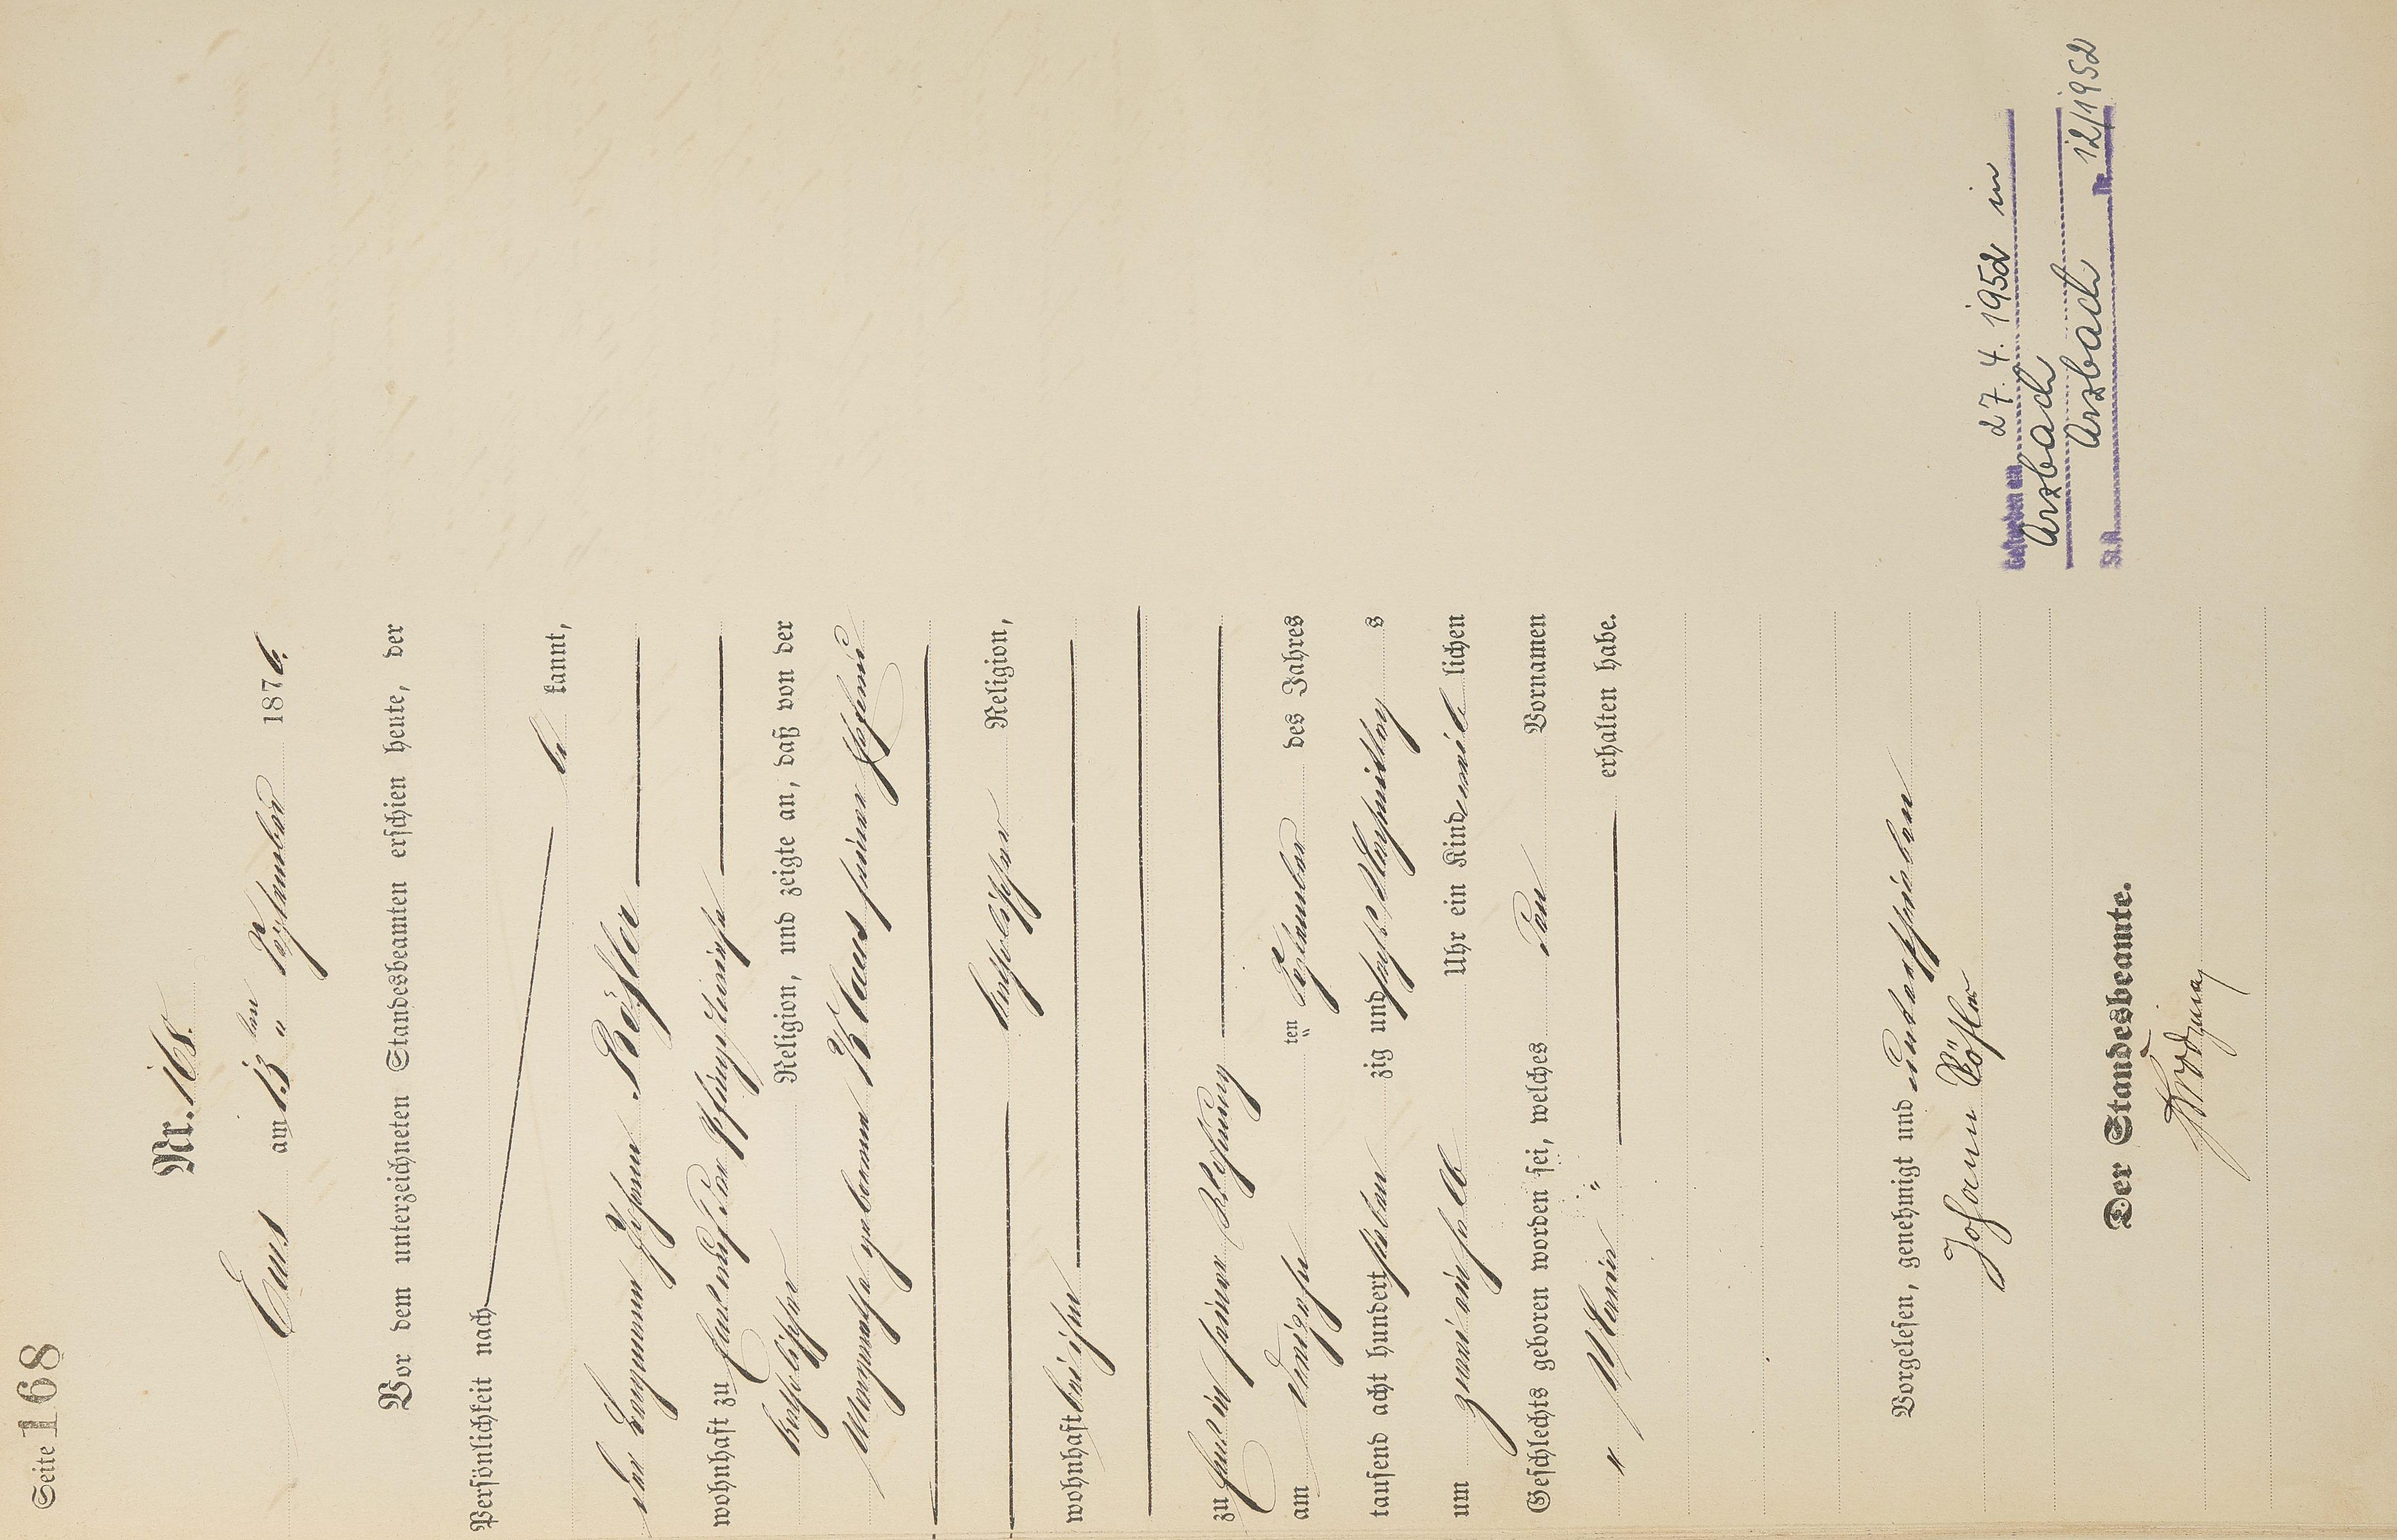 Seite 168
Nr. 168.
Ems am 13ten " Dezember 1876.
Vor dem unterzeichneten Standesbeamten erschien heute, der
Persönlichkeit nach
be kannt,
der Bergmann Johann Röster
wohnhaft zu Ems auf der Pfingstwiese
katholischer Religion, und zeigte an, daß von der
Margaretha geborenen Klaus seiner Ehefrau
katholischer Religion,
wohnhaft bei ihm
zu Ems in seiner Wohnung
am dreizehn ten Dezember des Jahres
tausend acht hundert sieben zig und sechs Nachmittags
um zwei ein halb Uhr ein Kind weib lichen
Geschlechts geboren worden sei, welches den Vornamen
" Maria " erhalten habe.
Vorgelesen, genehmigt und unterschrieben
Johann
Der Standesbeamte.
Gestorben am 27. 4. 1952 in
Arzbach
St.A. Arzbach Nr. 12/1952